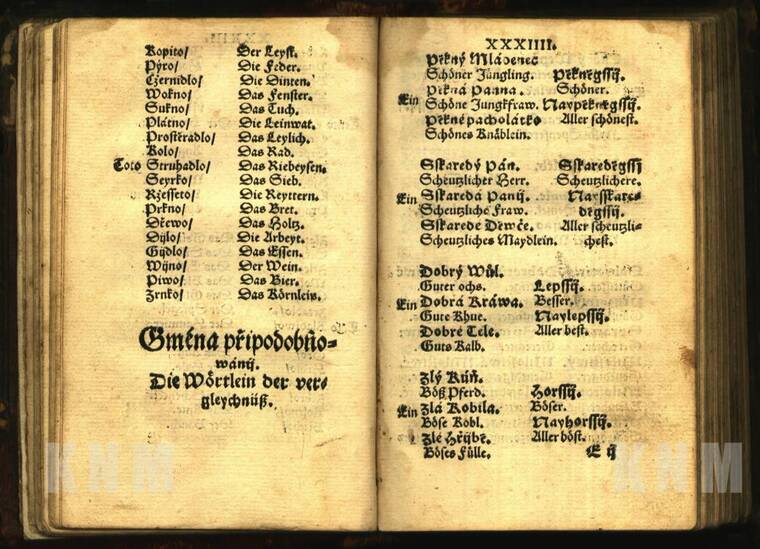 Kopito/ Der Leyst.
Pýro/ Die Feder.
Cžernidlo/ Die Dinten.
Wokno/ Das Fenster.
Sukno/ Das Tuch.
Plátno/ Die Leinwat.
Prostěradlo/ Das Leylich.
Kolo/ Das Rad.
Toto Struhadlo/ Das Riebeysen.
Seyrko/ Das Sieb.
Ržesseto/ Die Reyttern.
Prkno/ Das Bret.
Dřewo/ Das Holtz.
Dijlo/ Die Arbeyt.
Gijdlo/ Das Essen.
Wijno/ Der Wein.
Piwo/ Das Bier.
Zrnko/ Das Körnlein.
Gména připodobňo-
wánij.
Die Wörtlein der ver-
gleychnüß.
XXXIIII.
Pěkný Mládenec
Schöner Jüngling. Pěkněgssij.
Pěkná Panna. Schöner.
Ein Schöne Jungkfraw. Naypěkněgssij.
Pěkné pacholátko Aller schönest.
Schönes Knäblein.
Sskaredý Pán. Sskareděgssij
Scheutzlicher Herr. Scheutzlichere.
Ein Sskaredá Panij. Naysskare-
Scheutzliche Fraw. děgssij.
Sskaredé Děwče. Aller scheutzli-
Scheutzliches Maydlein. chest.
Dobrý Wůl.
Guter ochs. Lepssij.
Ein Dobrá Kráwa. Besser.
Gute Khue. Naylepssij.
Dobré Tele. Aller best.
Guts Kalb.
Zlý Kůň.
Böß Pferd. Horssij.
Ein Zlá Kobila. Böser.
Böse Kobl. Nayhorssij.
Zlé Hřijbě. Aller böst.
Böses Fülle. E ij
KNM
KNM